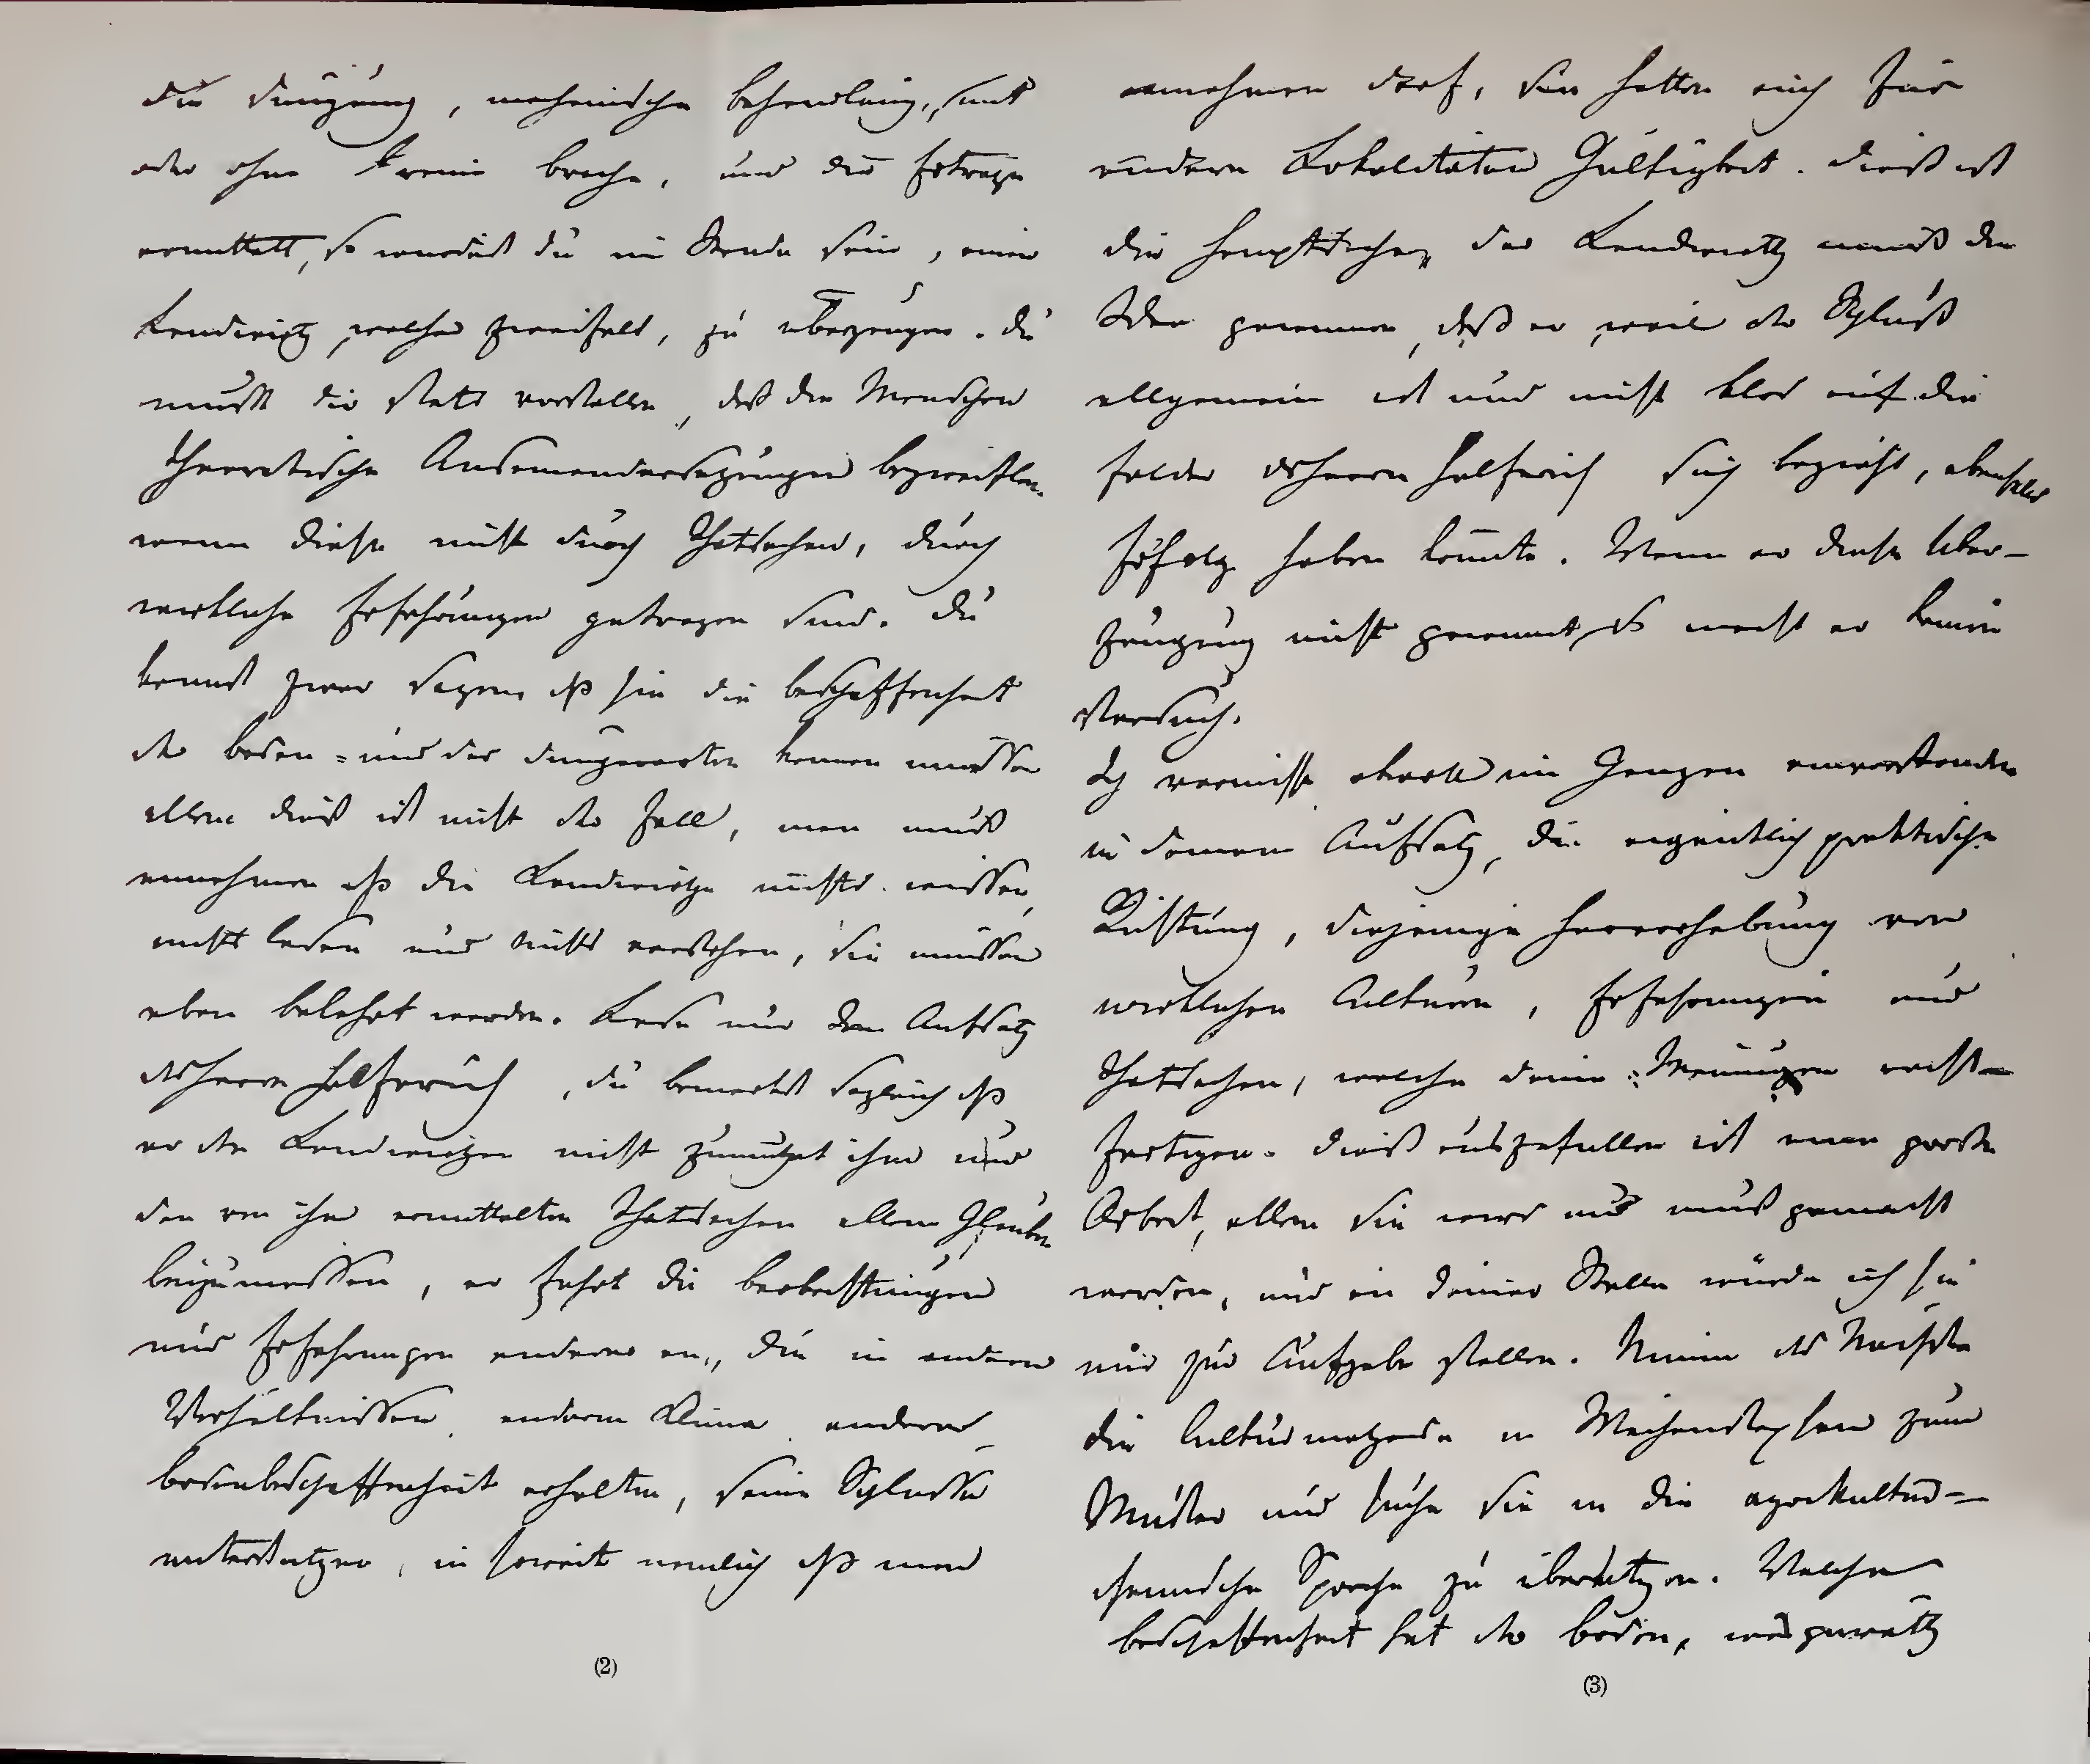 die Düngung, mechanische Behandlung, mit
oder ohne reine Brache, und die Erträge
ermittelt, so würdest du im Stande sein, einen
Landwirth, welcher zweifelt, zu überzeugen. Du
mußt dir stets vorstellen, daß die Menschen
theoretische Auseinandersetzungen bezweiflen
wenn diese nicht durch Thatsachen, durch
wirkliche Erfahrungen getragen sind. Du
kannst zwar sagen daß sie die Beschaffenheit
des Boden- und der Düngerarten kennen müssen
allein dieß ist nicht der Fall, man muß
annehmen daß die Landwirthe nichts wissen,
nichts lesen und nichts verstehen, sie müssen
eben belehrt werden. Lese nur den Aufsatz
des Herrn Helferich, du bemerkst sogleich daß
er den Landwirthen nicht zumuthet ihm und
den von ihm ermittelten Thatsachen allein Glauben
beizumessen, er führt die Beobachtungen
und Erfahrungen anderer an, die in andern
Verhältnissen, anderem Klima, anderer
Bodenbeschaffenheit erhalten, seine Schlüsse
unterstützen, in soweit nemlich daß man
(2)
annehmen darf, sie hätten auch für
andere Lokalitäten Gültigkeit. Dieß ist
die Hauptsache, der Landwirth muß die
Idee gewinnen, daß er, weil der Schluß
allgemein ist und nicht blos auf die
Felder des Herrn Helferich sich bezieht, ebenfalls
Erfolg haben könnte. Wenn er diese Über-
zeugung nicht gewinnt, so macht er keinen
Versuch.
Ich vermisse, obwohl im Ganzen einverstanden
in deinem Aufsatz, die eigentlich praktische
Richtung, diejenige Hervorhebung von
wirklichen Culturen, Erfahrungen und
Thatsachen, welche deine Meinungen recht-
fertigen. Dieß auszufüllen ist eine große
Arbeit, allein sie wird und muß gemacht
werden, und an deiner Stelle würde ich sie
mir zur Aufgabe stellen. Nimm als Nächste
die Culturmethode in Weihenstephan zum
Muster und suche sie in die agrikultur-
chemische Sprache zu übersetzen. Welche
Beschaffenheit hat der Boden, was geräth
(3)